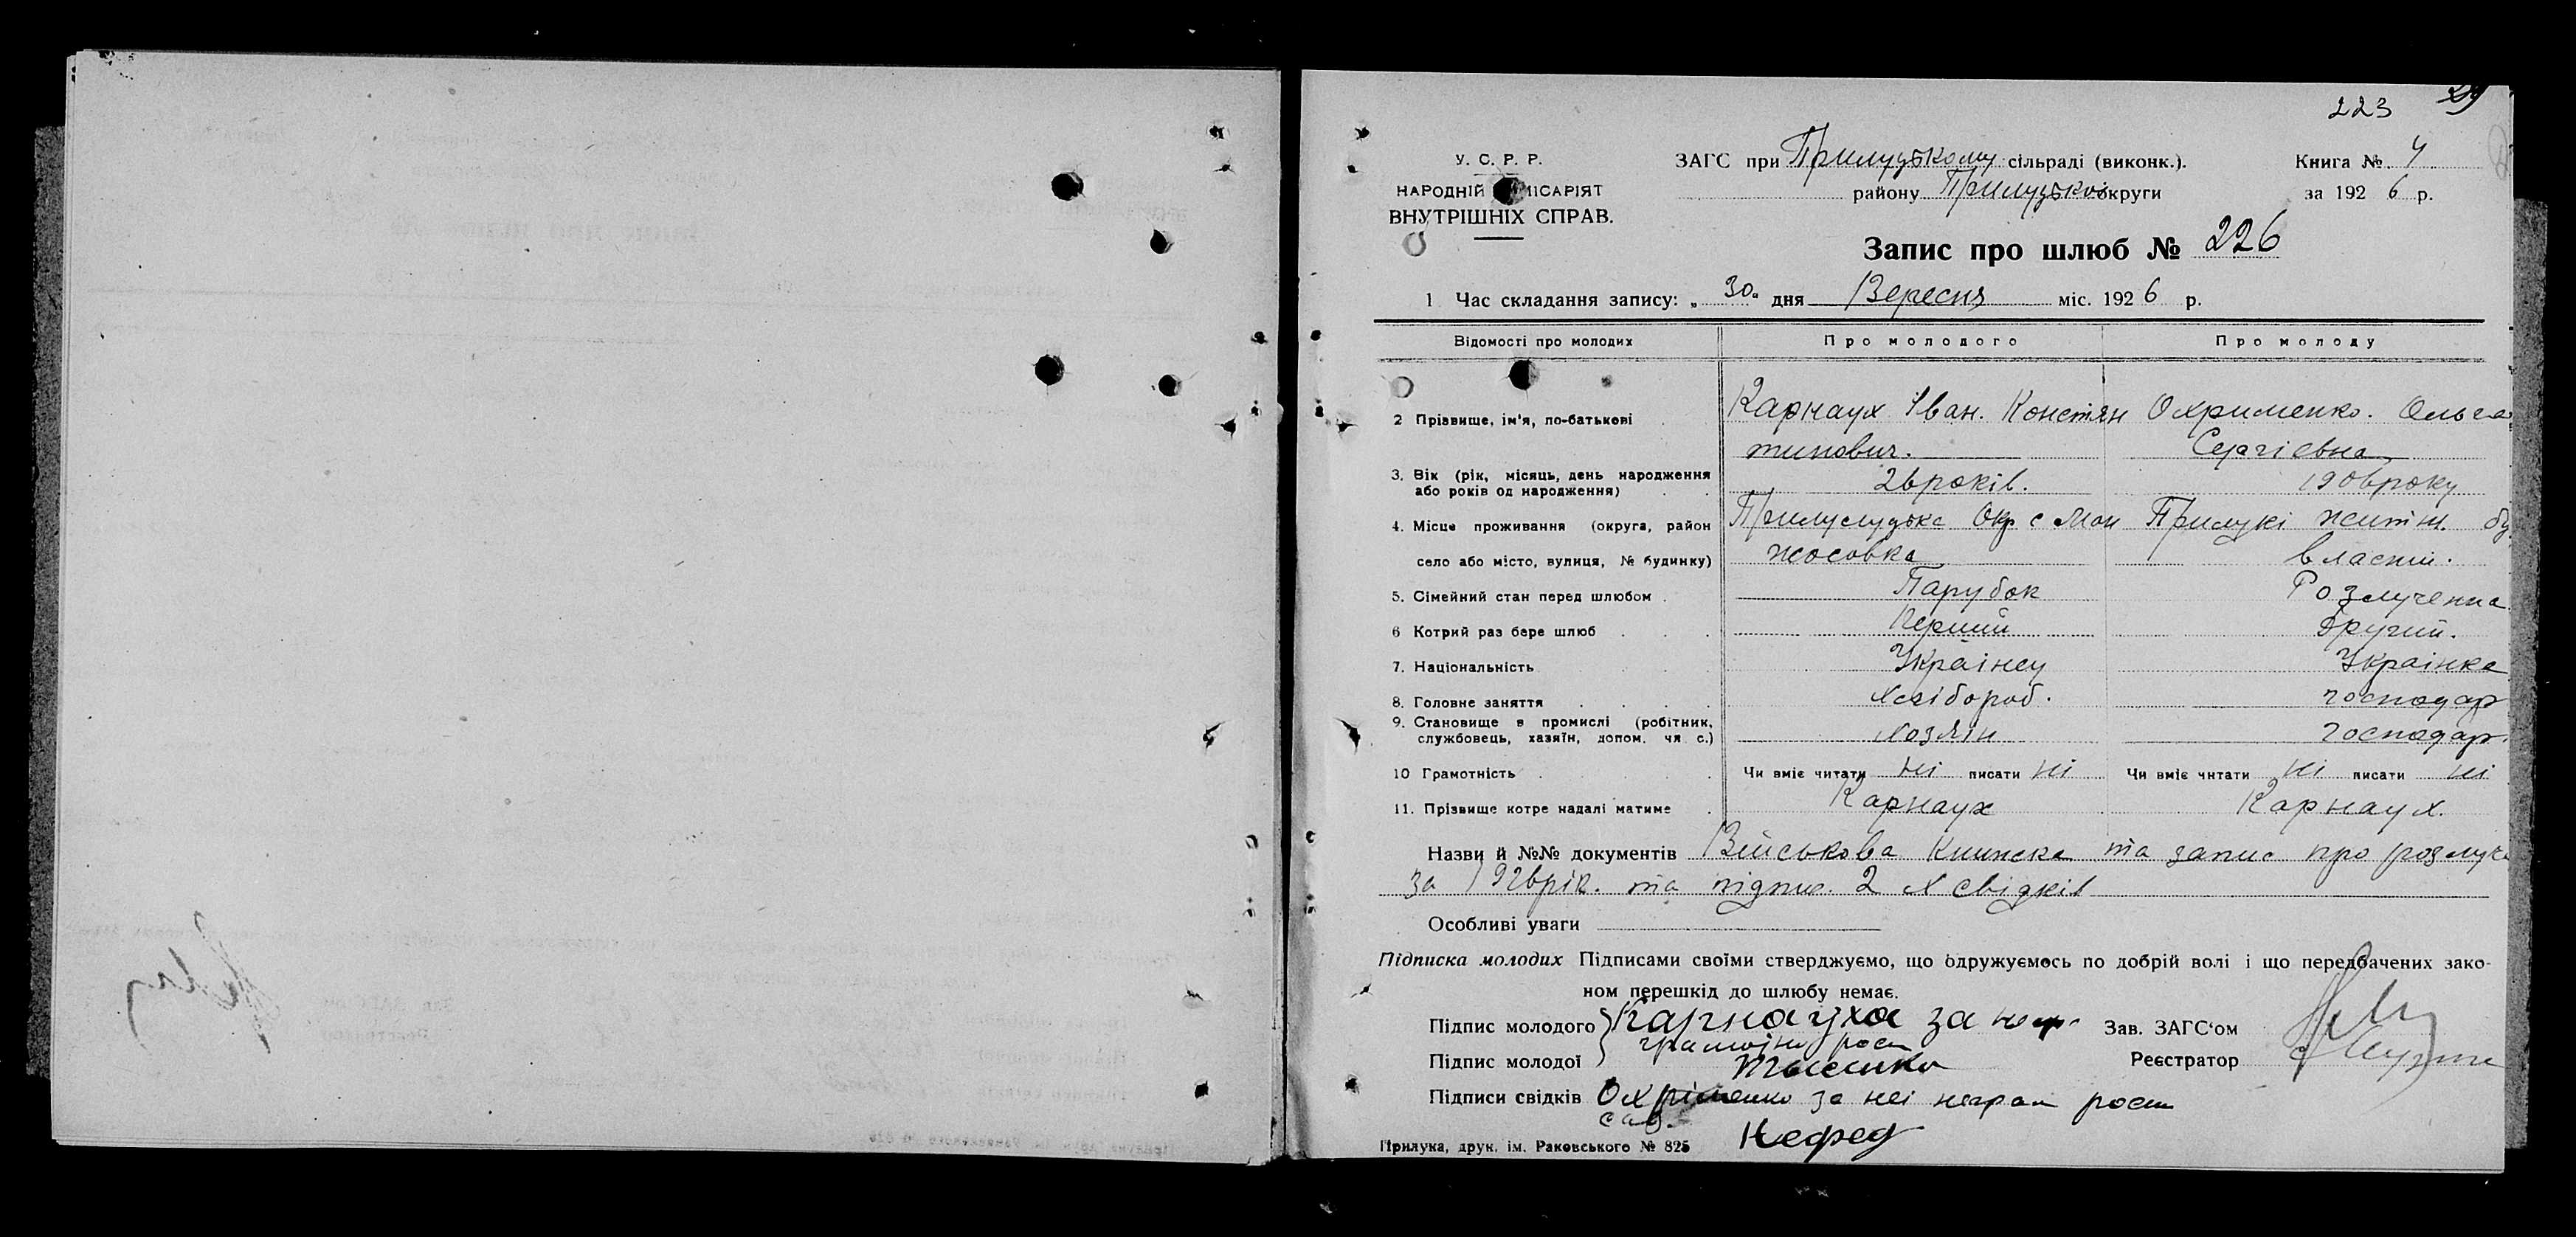 223 29
У. С. Р. Р.
НАРОДНІЙ КОМІСАРІЯТ
ВНУТРІШНІХ СПРАВ.
ЗАГС при Прилуцькому сільраді (виконк.).
району Прилуцько округи
Книга № 4
за 1926 р.
Запис про шлюб № 226
1 Час складання запису: „30“ дня Вересня міс. 1926 р.
Відомості про молодих Про молодого Про молоду
2 Прізвище, ім'я, по-батькові Карнаух Іван. Констян Охрименко. Ольга
тинович. Сергіевна
3. Вік (рік, місяць, день народження
або років од народження) 26 років. 1906 року
4. Місце проживання (округа, район Прилуслудьке Окр с Ман Прилукі житт. бу
село або місто, вулиця, № будинку) жосовка власти.
5. Сімейний стан перед шлюбом Парубок Розлученна
6 Котрий раз бере шлюб Перший Другий.
7. Національність Украінец Украінка
8. Головне заняття Хлібороб. господар
9. Становище в промислі (робітник,
службовець, хазяїн, допом. чл с.) Хозяін господар.
10 Грамотність Чи вміє читати ні писати ні Чи вміє читати ні писати ні
11. Прізвище котре надалі матиме Карнаух Карнаух.
Назви й №№ документів Військова Книжка та запис про розлуку
за 1926 рік. та підпис. 2 х свідків
Особливі уваги
Підписка молодих Підписами своїми стверджуємо, що одружуємось по добрій волі і що передбачених зако-
ном перешкід до шлюбу немає.
Підпис молодого Карнауха за не
грамотн росп
Зав. ЗАГС'ом
Підпис молодої
Реєстратор
Підписи свідків Охріменко за неі неграм росп
Нефед
Прилука, друк. ім. Раковського № 825